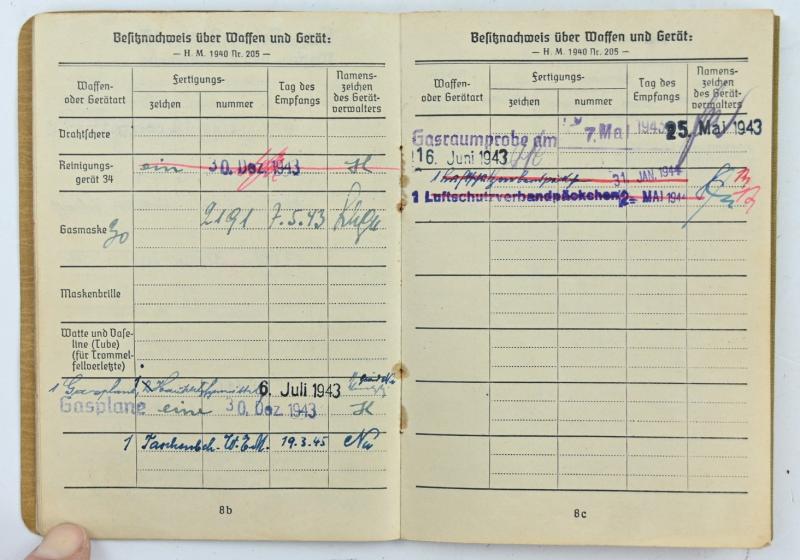 Besitznachweis über Waffen und Gerät:
— H. M. 1940 Nr. 205 —
Waffen- oder Gerätart
Fertigungs-
zeichen
nummer
Tag des Empfangs
Namens- zeichen des Gerät- verwalters
Drahtschere
Reinigungs-
gerät 34
ein 30. Dez. 1943
Gasmaske 30 2191 7.5.43
Maskenbrille
Watte und Vase-
line (Tube)
(für Trommel-
fellverletzte)
1 Gasplane, 6. Juli 1943
Gasplane eine 30. Dez. 1943
1 Taschenlch. W.E.M. 19.3.45
8b
Besitznachweis über Waffen und Gerät:
— H. M. 1940 Nr. 205 —
Waffen- oder Gerätart
Fertigungs-
zeichen
nummer
Tag des Empfangs
Namens- zeichen des Gerät- verwalters
Gasraumprobe am 7. Mai 1943 25. Mai 1943
16. Juni 1943
1 31. JAN. 1944
1 Luftschutzverbandpäckchen 2- MAI 1944
8c